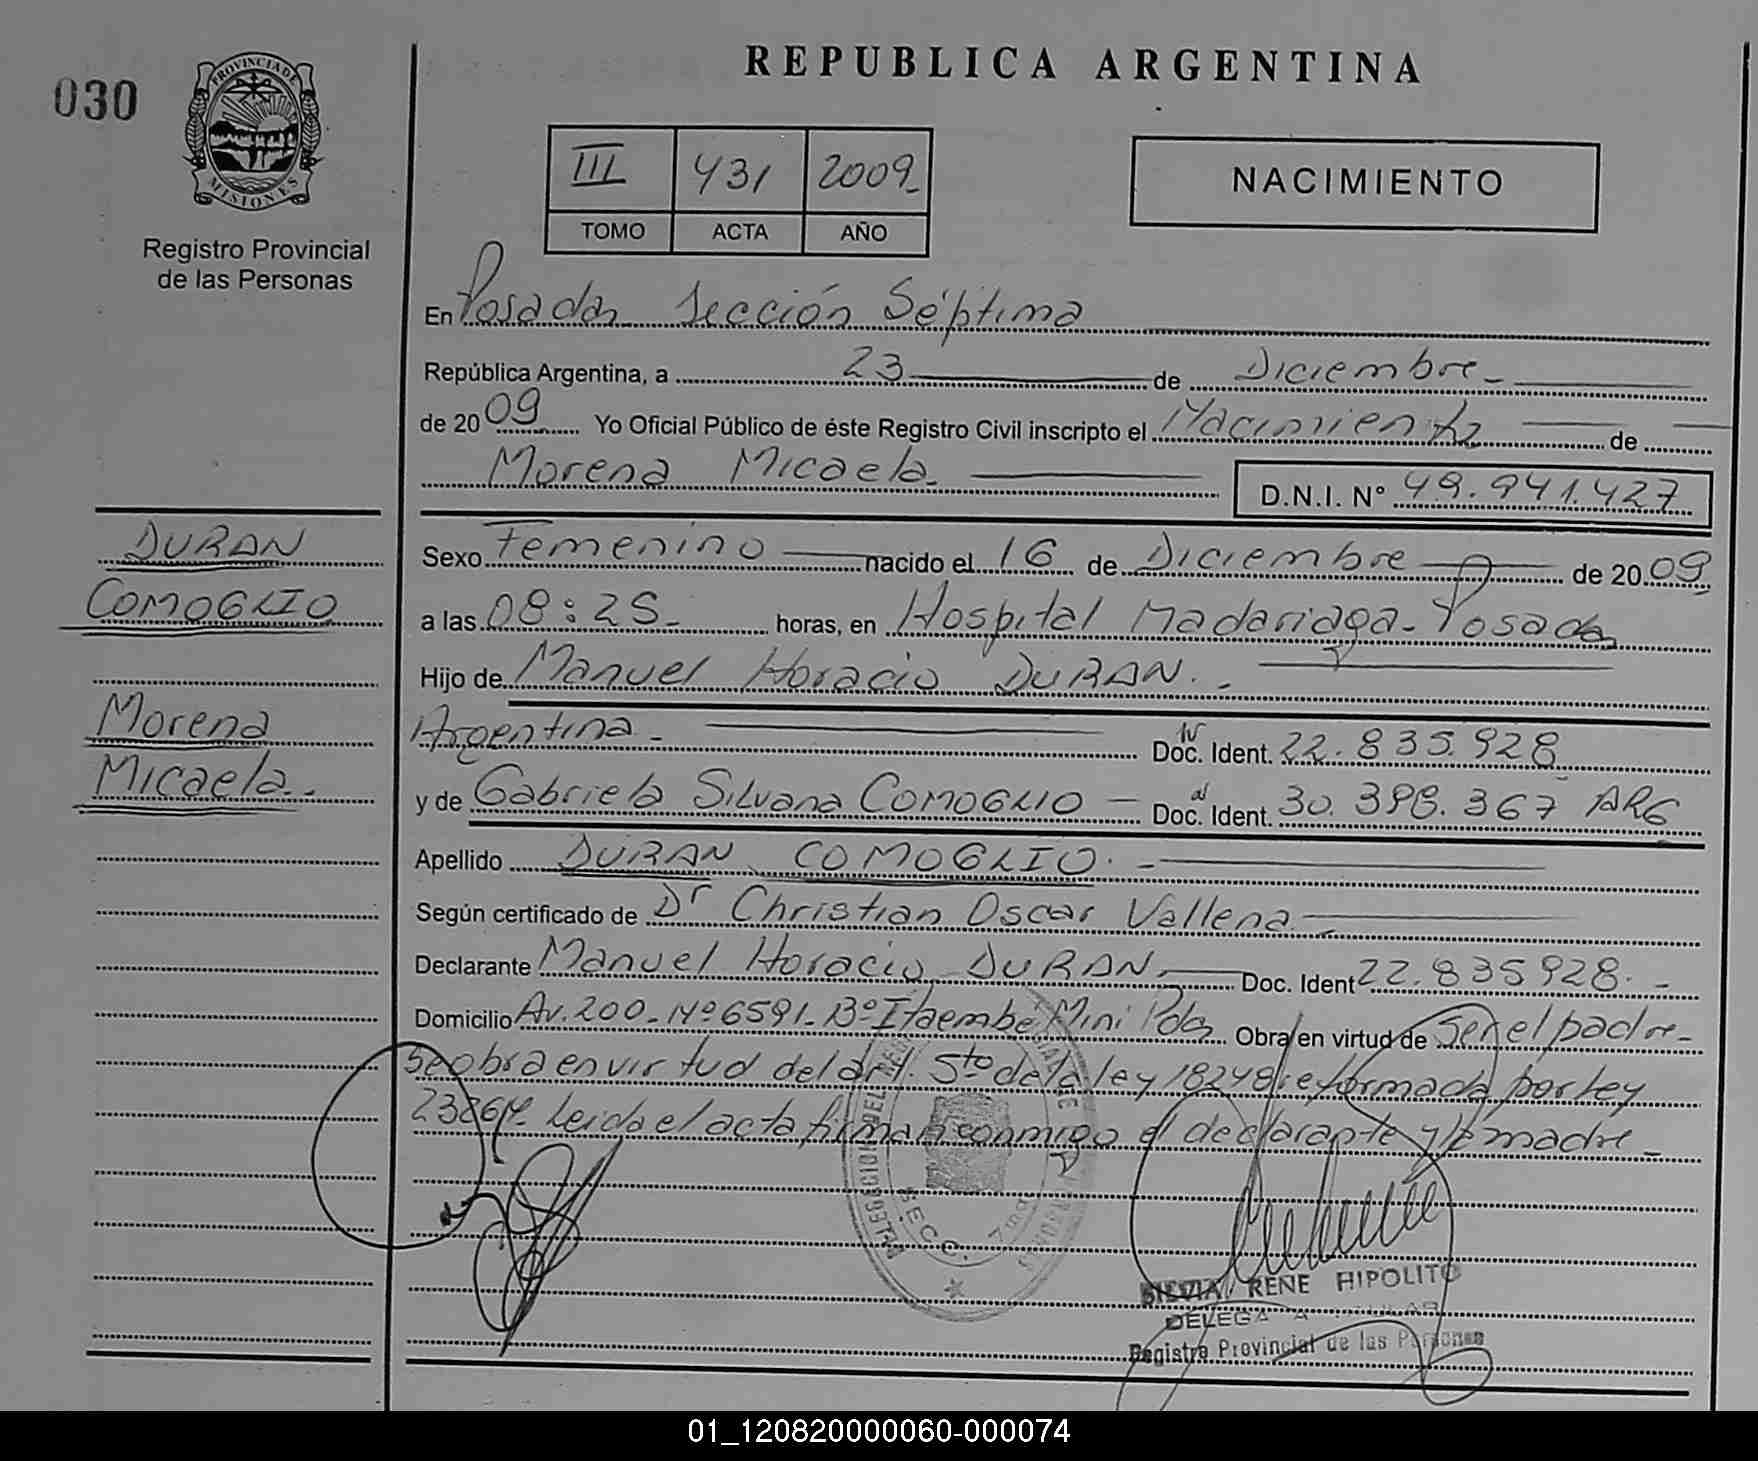 REPUBLICA ARGENTINA
030
PROVINCIA DE
MISIONES
Registro Provincial
de las Personas
III 431 2009
TOMO ACTA AÑO
NACIMIENTO
En Posadas Sección Séptima
República Argentina, a 23 de Diciembre
de 2009 Yo Oficial Público de éste Registro Civil inscripto el Nacimiento de
Morena Micaela D.N.I. N° 49.941.427
DURAN
COMOGLIO
Morena
Micaela
Sexo Femenino nacido el 16 de Diciembre de 2009
a las 08:25 horas, en Hospital Madariaga - Posadas
Hijo de Manuel Horacio DURAN.
Argentina Doc. Ident. 22.835.928
y de Gabriela Silvana COMOGLIO Doc. Ident. 30.398.367 ARG
Apellido DURAN COMOGLIO.
Según certificado de Dr Christian Oscar Vallena
Declarante Manuel Horacio DURAN Doc. Ident 22.835928.
Domicilio Av. 200 - Nº 6591 - Bº Itaembe Mini Pdas Obra en virtud de ser el padre -
Se obra en virtud del art. 5to de la ley 18248 reformada por ley
Leida el acta firman conmigo el declarante y la madre
SECC. 7ma
SILVIA RENE HIPOLITO
Registro Provincial de las Personas
01_120820000060-000074